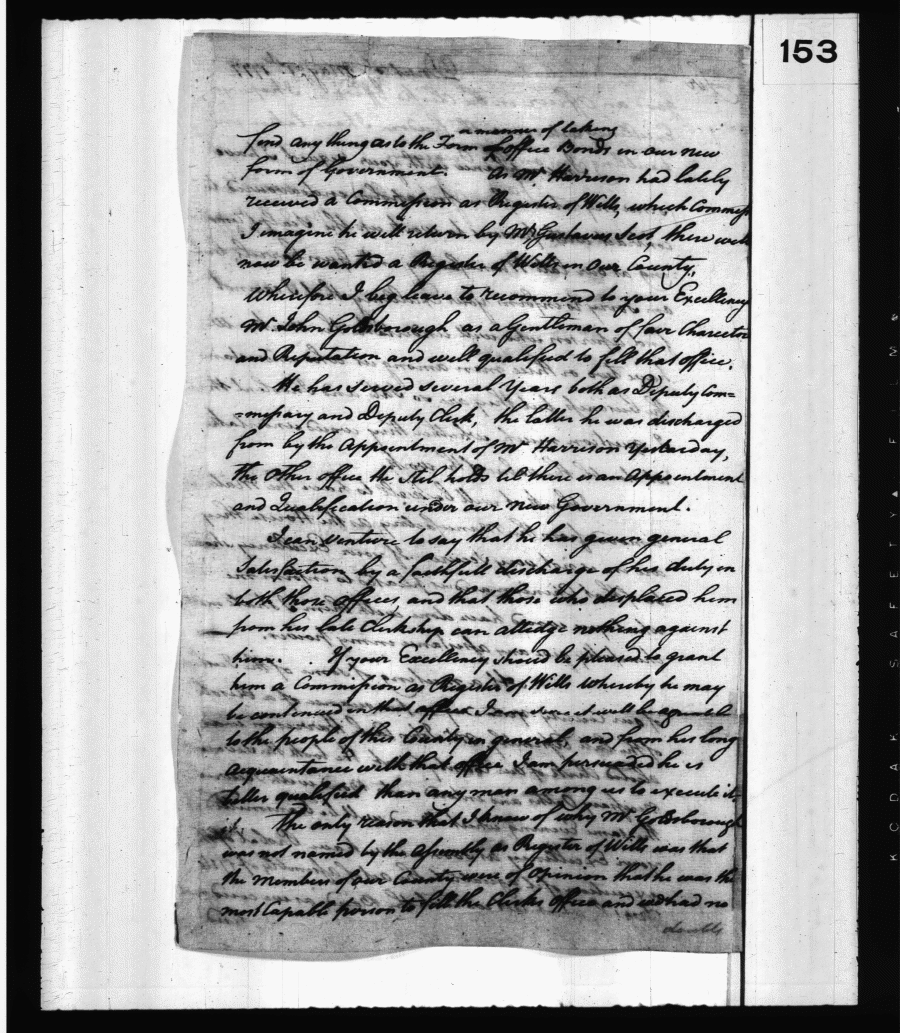 153
a manner of taking
find any thing as to the Form of office Bonds in our new
form of Government. As Mr Harrison had lately
received a Commission as Register of Wills, which Commiss
I imagine he will return by Mr Gustavus Scot, there will
now be wanted a Register of Wills in our County,
Wherefore I beg leave to recommend to your Excellency
Mr John Goldsborough as a Gentleman of fair Charecter
and Reputation and well qualified to fill that office.
He has served several Years both as Deputy Com=
=missary and Deputy Clerk, the latter he was discharged
from by the Appointment of Mr Harrison Yesterday,
the other office he stil holds til there is an Appointment
and Qualification under our new Government.
I can venture to say that he has given general
Satisfaction by a faithfull discharge of his duty in
both those offices, and that those who displaced him
from his late Clerkship can alledge nothing against
him. If your Excellency should be pleased to grant
him a Commission as Register of Wills whereby he may
be continued in that office I am sure it will be agreeable
to the people of this County in general, and from his long
acquaintance with that office I am persuaded he is
better qualified than any man among us to execute it
it. The only reason that I know of why Mr Goldsborough
was not named by the Assembly as Register of Wills was that
the members of our County were of Opinion that he was the
most Capable person to fill the Clerks office and we had no
doubts
KODAK SAFETY FILM